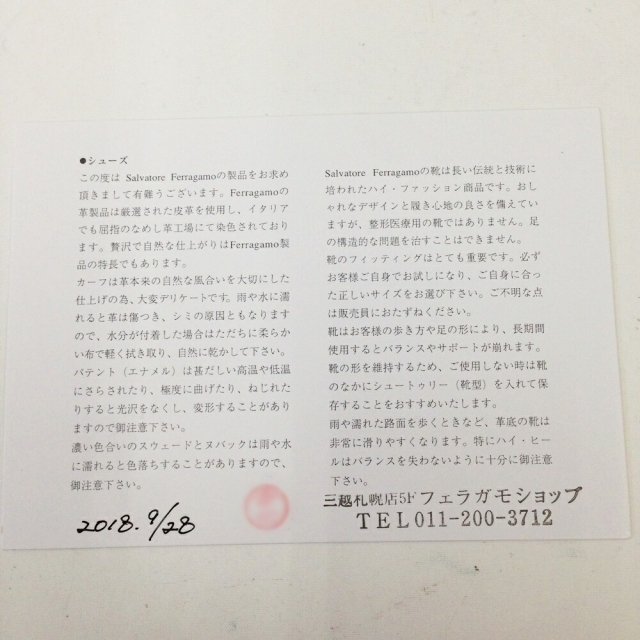 ●シューズ
この度は Salvatore Ferragamoの製品をお求め
頂きまして有難うございます。Ferragamoの
革製品は厳選された皮革を使用し、イタリア
でも屈指のなめし革工場にて染色されており
ます。贅沢で自然な仕上がりはFerragamo製
品の特長でもあります。
カーフは革本来の自然な風合いを大切にした
仕上げの為、大変デリケートです。雨や水に濡
れると革は傷つき、シミの原因ともなります
ので、水分が付着した場合はただちに柔らか
い布で軽く拭き取り、自然に乾かして下さい。
パテント（エナメル）は甚だしい高温や低温
にさらされたり、極度に曲げたり、ねじれた
りすると光沢をなくし、変形することがあり
ますので御注意下さい。
濃い色合いのスウェードとヌバックは雨や水
に濡れると色落ちすることがありますので、
御注意下さい。
2018.9/28
Salvatore Ferragamoの靴は長い伝統と技術に
培われたハイ・ファッション商品です。おし
ゃれなデザインと履き心地の良さを備えてい
ますが、整形医療用の靴ではありません。足
の構造的な問題を治すことはできません。
靴のフィッティングはとても重要です。必ず
お客様ご自身でお試しになり、ご自身に合っ
た正しいサイズをお選び下さい。ご不明な点
は販売員におたずねください。
靴はお客様の歩き方や足の形により、長期間
使用するとバランスやサポートが崩れます。
靴の形を維持するため、ご使用しない時は靴
のなかにシュートゥリー（靴型）を入れて保
存することをおすすめいたします。
雨や濡れた路面を歩くときなど、革底の靴は
非常に滑りやすくなります。特にハイ・ヒー
ルはバランスを失わないように十分に御注意
下さい。
三越札幌店5F フェラガモショップ
TEL 011-200-3712